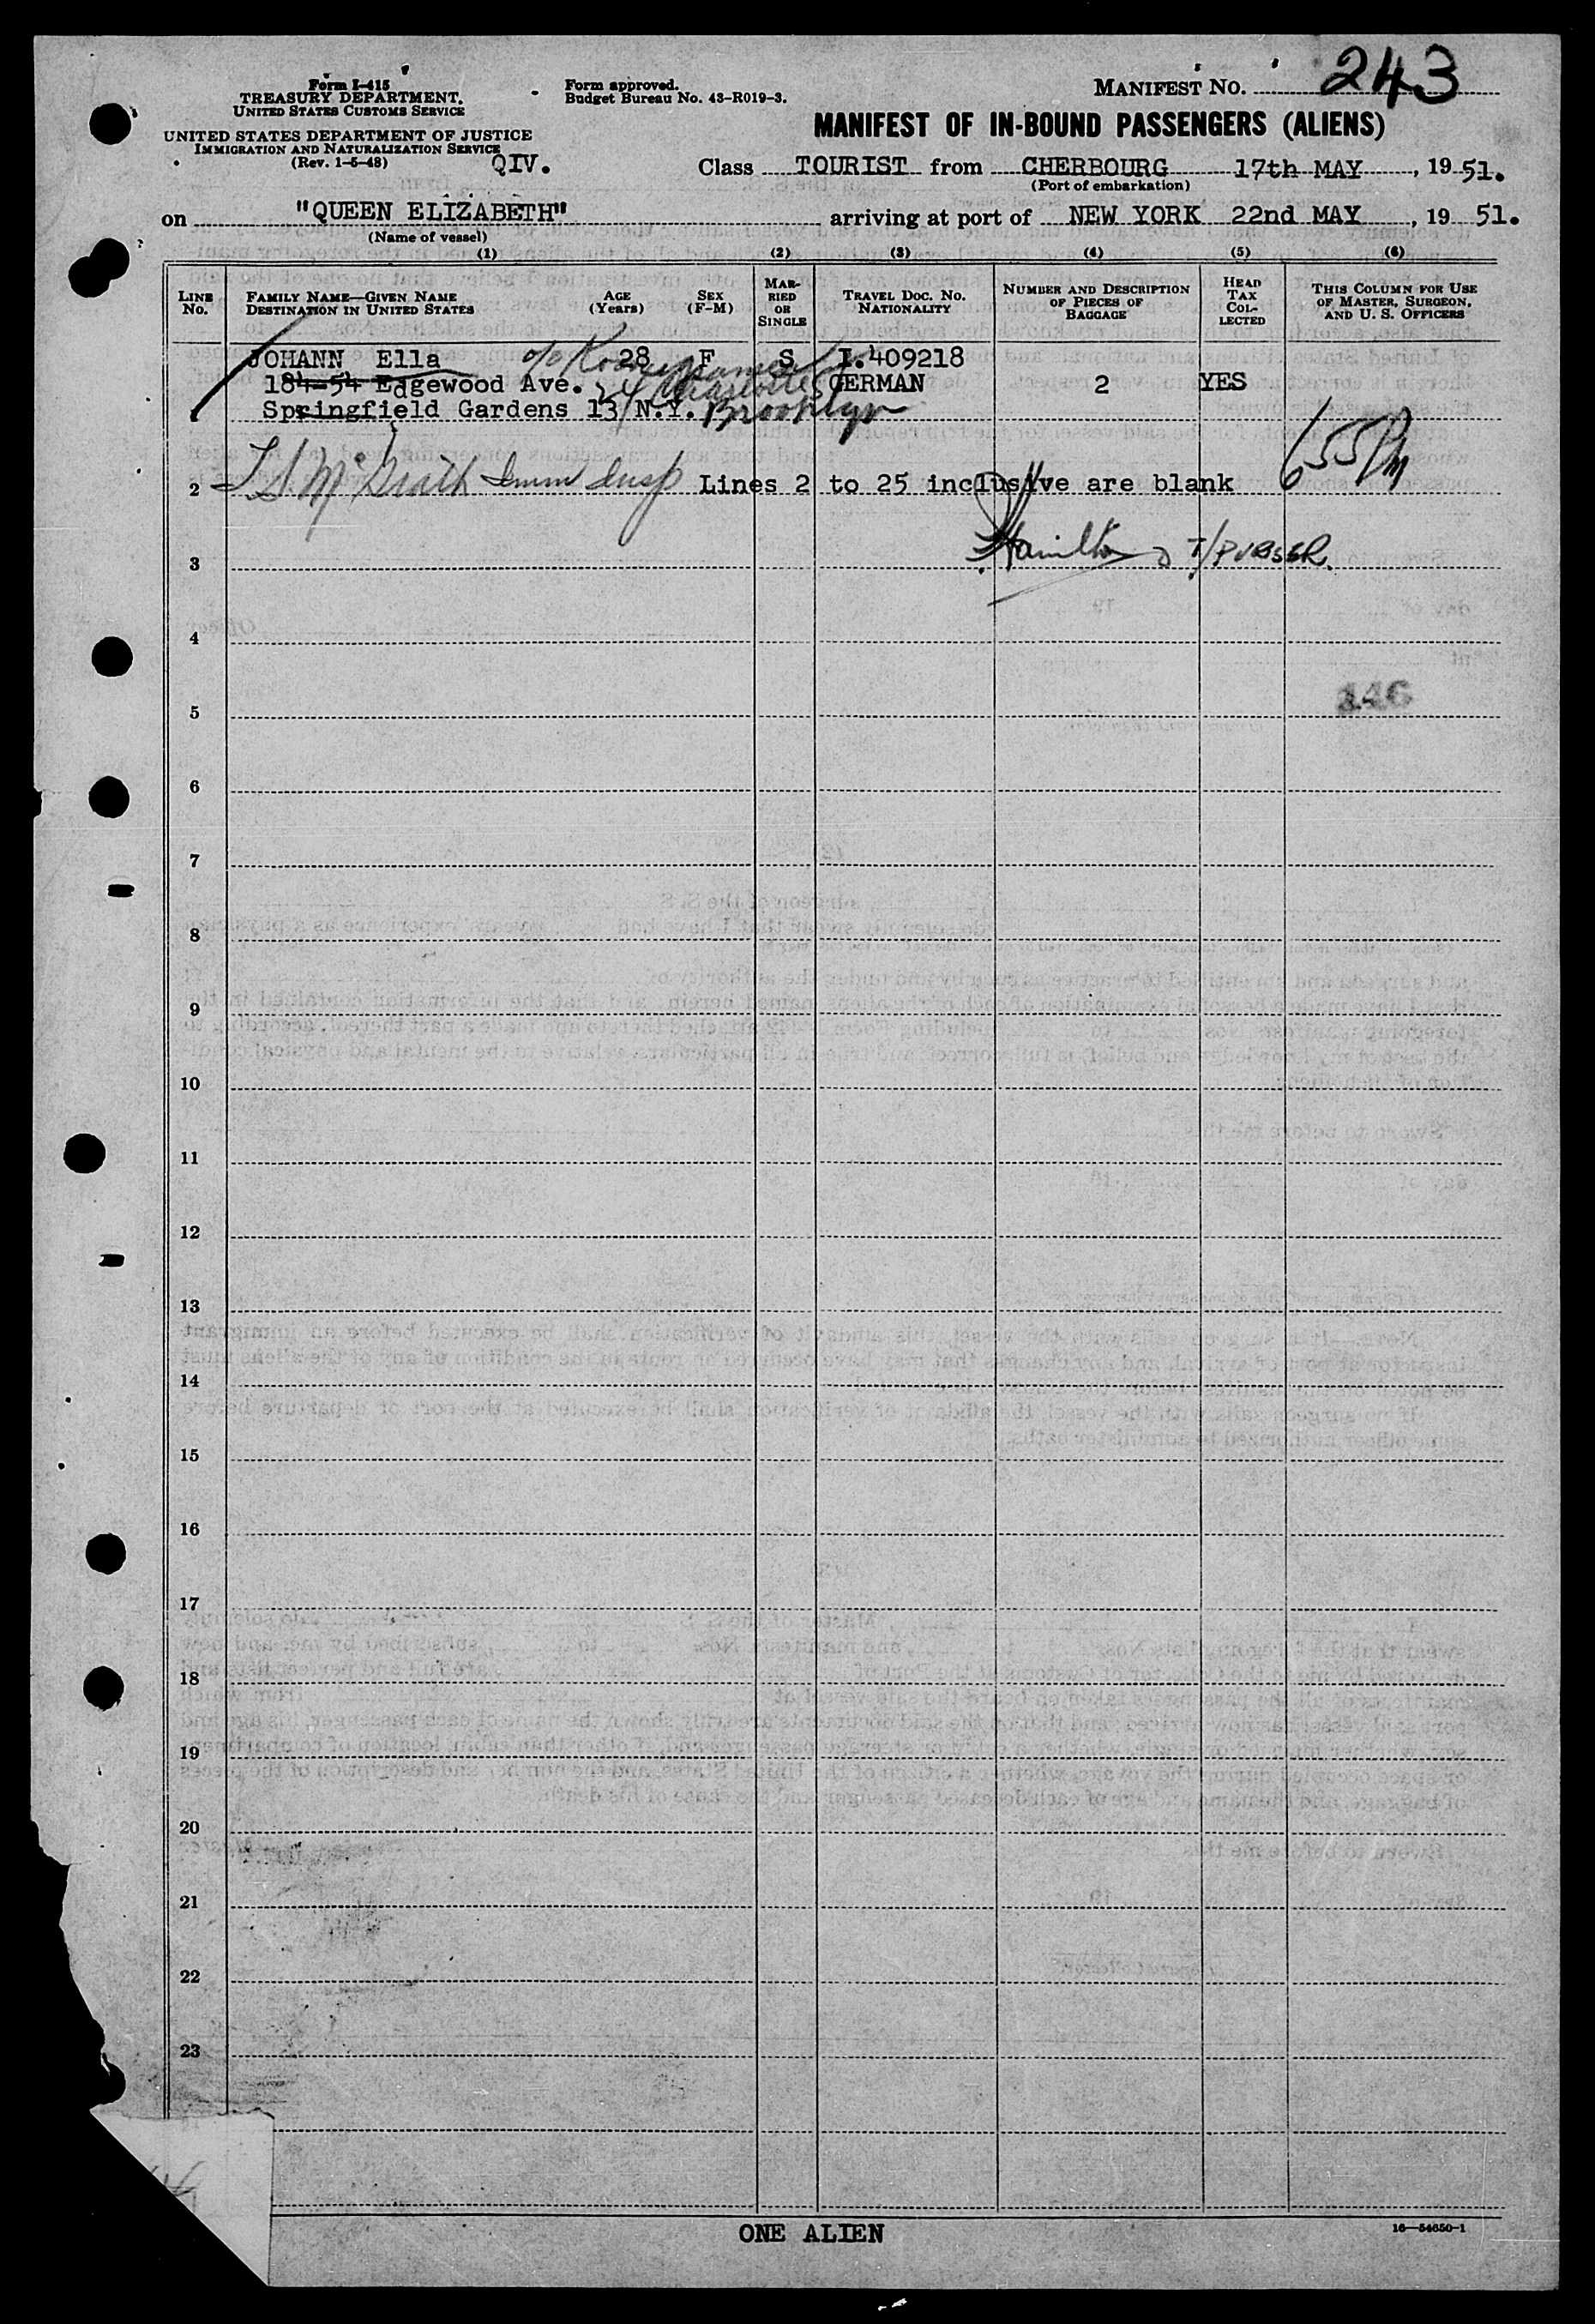 Form I-415
TREASURY DEPARTMENT.
UNITED STATES CUSTOMS SERVICE
UNITED STATES DEPARTMENT OF JUSTICE
IMMIGRATION AND NATURALIZATION SERVICE
(Rev. 1-5-48)
QIV.
Form approved.
Budget Bureau No. 43-R019-3.
MANIFEST NO. 243
MANIFEST OF IN-BOUND PASSENGERS (ALIENS)
Class TOURIST from CHERBOURG 17th MAY, 19 51.
(Port of embarkation)
on "QUEEN ELIZABETH" arriving at port of NEW YORK 22nd MAY, 19 51.
(Name of vessel)
(1) (2) (3) (4) (5) (6)
LINE NO.
FAMILY NAME—GIVEN NAME
DESTINATION IN UNITED STATES
AGE (Years)
SEX (F-M)
MARRIED OR SINGLE
TRAVEL DOC. NO.
NATIONALITY
NUMBER AND DESCRIPTION OF PIECES OF BAGGAGE
HEAD TAX COLLECTED
THIS COLUMN FOR USE OF MASTER, SURGEON, AND U. S. OFFICERS
JOHANN Ella 28 F S I.409218
184-54 Edgewood Ave. GERMAN 2 YES
Springfield Gardens 13 N.Y. Brooklyn
2 Imm Insp Lines 2 to 25 inclusive are blank 655 PM
3 Hamilton T/PURSER.
4
5
146
6
7
8
9
10
11
12
13
14
15
16
17
18
19
20
21
22
23
ONE ALIEN
16—54650-1